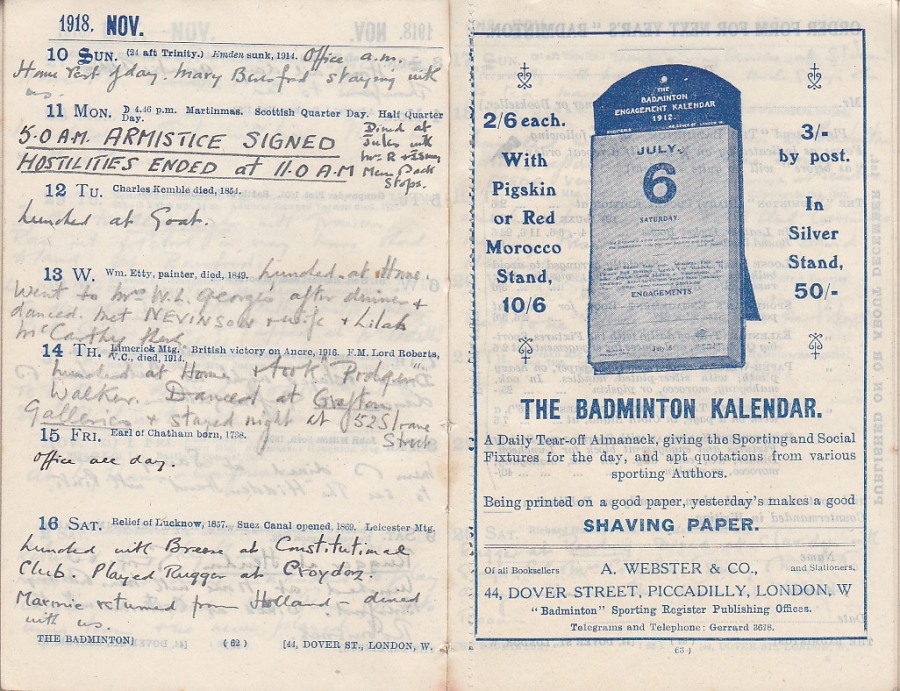 1918. NOV.
10 SUN. (24 aft Trinity.) Emden sunk, 1914. Office a.m.
Home rest of day. Mary Beresford staying with
us.
11 MON. D 4.46 p.m. Martinmas. Scottish Quarter Day. Half Quarter
Day.
5.0 A.M. ARMISTICE SIGNED
HOSTILITIES ENDED at 11.0 A.M
Dined at
Jules with
Mrs. R
Stops.
12 TU. Charles Kemble died, 1854.
Lunched at Goat.
13 W. Wm. Etty, painter, died, 1849. Lunched at Home.
Went to Mrs W.L. George's after dinner +
danced. Met NEVINSON + wife + Lilah
McCarthy there
14 TH. Limerick Mtg. British victory on Ancre, 1916. F.M. Lord Roberts,
V.C., died, 1914.
Lunched at Home + took "Prodger"
Walker. Danced at Grafton
Galleries + stayed night at 52 Sloane
Street
15 FRI. Earl of Chatham born, 1788.
Office all day.
16 SAT. Relief of Lucknow, 1857. Suez Canal opened, 1869. Leicester Mtg.
Lunched with Breene at Constitutional
Club. Played Rugger at Croydon.
returned from Holland – dined
with us.
THE BADMINTON] (62) [44, DOVER ST., LONDON, W.
THE
BADMINTON
ENGAGEMENT KALENDAR
1912.
JULY.
6
SATURDAY.
ENGAGEMENTS.
2/6 each.
With
Pigskin
or Red
Morocco
Stand,
10/6
3/-
by post.
In
Silver
Stand,
50/-
THE BADMINTON KALENDAR.
A Daily Tear-off Almanack, giving the Sporting and Social
Fixtures for the day, and apt quotations from various
sporting Authors.
Being printed on a good paper, yesterday's makes a good
SHAVING PAPER.
Of all Booksellers A. WEBSTER & CO., and Stationers.
44, DOVER STREET, PICCADILLY, LONDON, W
"Badminton" Sporting Register Publishing Offices.
Telegrams and Telephone: Gerrard 3628.
(63)